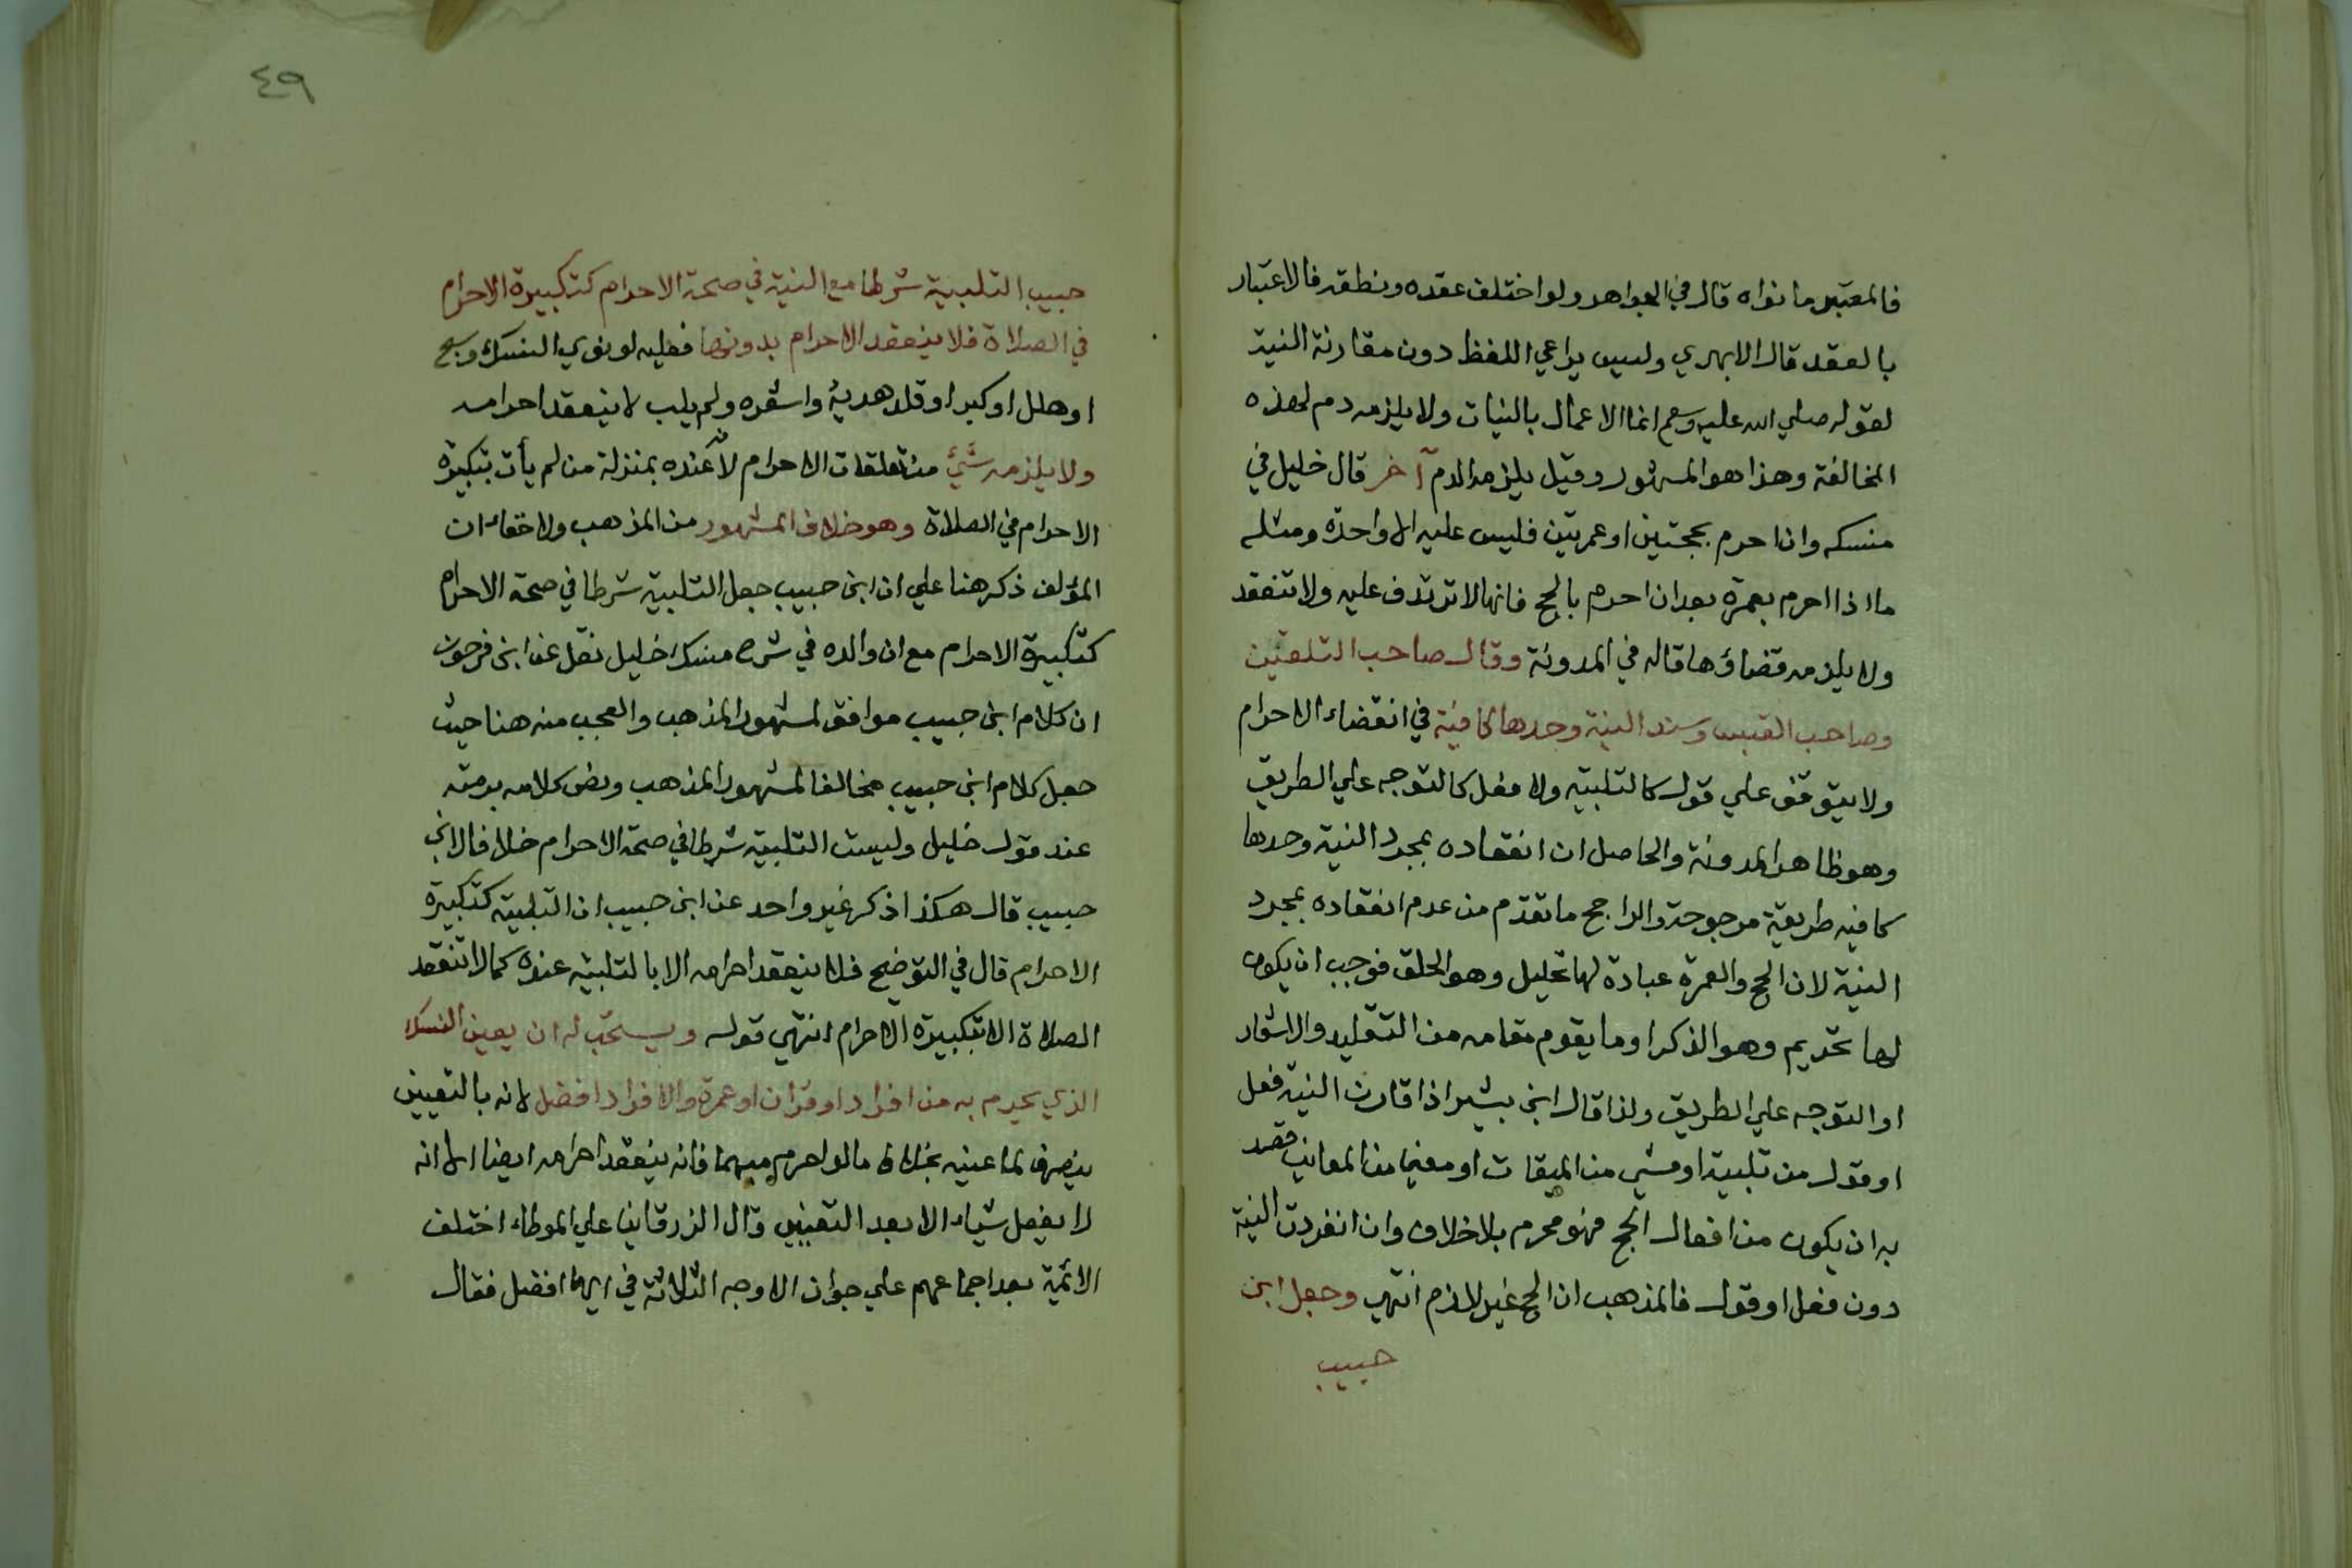 فالمعتبر ما نواه قال في الجواهر ولو اختلف عقده ونطقه فالاعتبار
بالعقد قال الابهري وليس يراعي اللفظ دون مقارنة النية
لقوله صلي الله عليه وسلم انما الاعمال بالنيات ولا يلزمه دم لهذه
المخالفة وهذا هو المشهور وقيل يلزمه الدم آخر قال خليل في
منسكه وان احرم بحجتين او عمرتين فليس عليه الا واحدة ومثله
ما اذا احرم بعمرة بعد ان احرم بالحج فانها لا ترتدف عليه ولا تنعقد
ولا يلزمه قضاؤها قاله في المدونة وقال صاحب التلقين
وصاحب القبس وسند النية وحدها كافية في انعقاد الاحرام
ولا يتوقف علي قول كالتلبية ولا فعل كالتوجه علي الطريق
وهو ظاهر المدونة والحاصل ان انعقاده بمجرد النية وحدها
كافيه طريقة مرجوحة والراجح ما تقدم من عدم انعقاده بمجرد
النية لان الحج والعمرة عبادة لها تحليل وهو الحلق فوجب ان يكون
لها تحريم وهو الذكر او ما يقوم مقامه من التقليد والاشعار
او التوجه علي الطريق ولذا قال ابن بشير اذا قارن النية فعل
او قول من تلبية او مشي من الميقات او معني من المعاني قصد
به ان يكون من افعال الحج فهو محرم بلا خلاف وان انفردت النية
دون فعل او قول فالمذهب ان الحج غير لازم انتهي وجعل ابن
حبيب
٤٩
حبيب التلبية شرطا مع النية في صحة الاحرام كتكبيرة الاحرام
في الصلاة فلا ينعقد الاحرام بدونها فعليه لو نوي النسك وسبح
او هلل او كبر او قلد هديه واشعره ولم يلب لا ينعقد احرامه
ولا يلزمه شئ من تعلقات الاحرام لانه عنده بمنزلة من لم يأت بتكبيرة
الاحرام في الصلاة وهو خلاف المشهور من المذهب ولا خفاء ان
المؤلف ذكر هنا علي ان ابن حبيب جعل التلبية شرطا في صحة الاحرام
كتكبيرة الاحرام مع ان والده في شرح منسك خليل نقل عن ابن فرحون
ان كلام ابن حبيب موافق لمشهور المذهب والعجب منه هنا حيث
جعل كلام ابن حبيب مخالفا لمشهور المذهب ونص كلامه برمته
عند قول خليل وليست التلبية شرطا في صحة الاحرام خلافا لابن
حبيب قال هكذا ذكر غير واحد عن ابن حبيب ان التلبية كتكبيرة
الاحرام قال في التوضيح فلا ينعقد احرامه الا بالتلبية عنده كما لا تنعقد
الصلاة الا بتكبيرة الاحرام انتهي قوله ويستحب له ان يعين النسك
الذي يحرم به من افراد او قران او عمرة والافراد افضل لانه بالتعيين
ينصرف لما عينه بخلاف ما لو احرم مبهما فانه ينعقد احرامه ايضا الا انه
لا يفعل شياء الا بعد التعيين وقال الزرقاني علي الموطاء اختلف
الائمة بعد اجماعهم علي جواز الاوجه الثلاثة في ايها افضل فقال